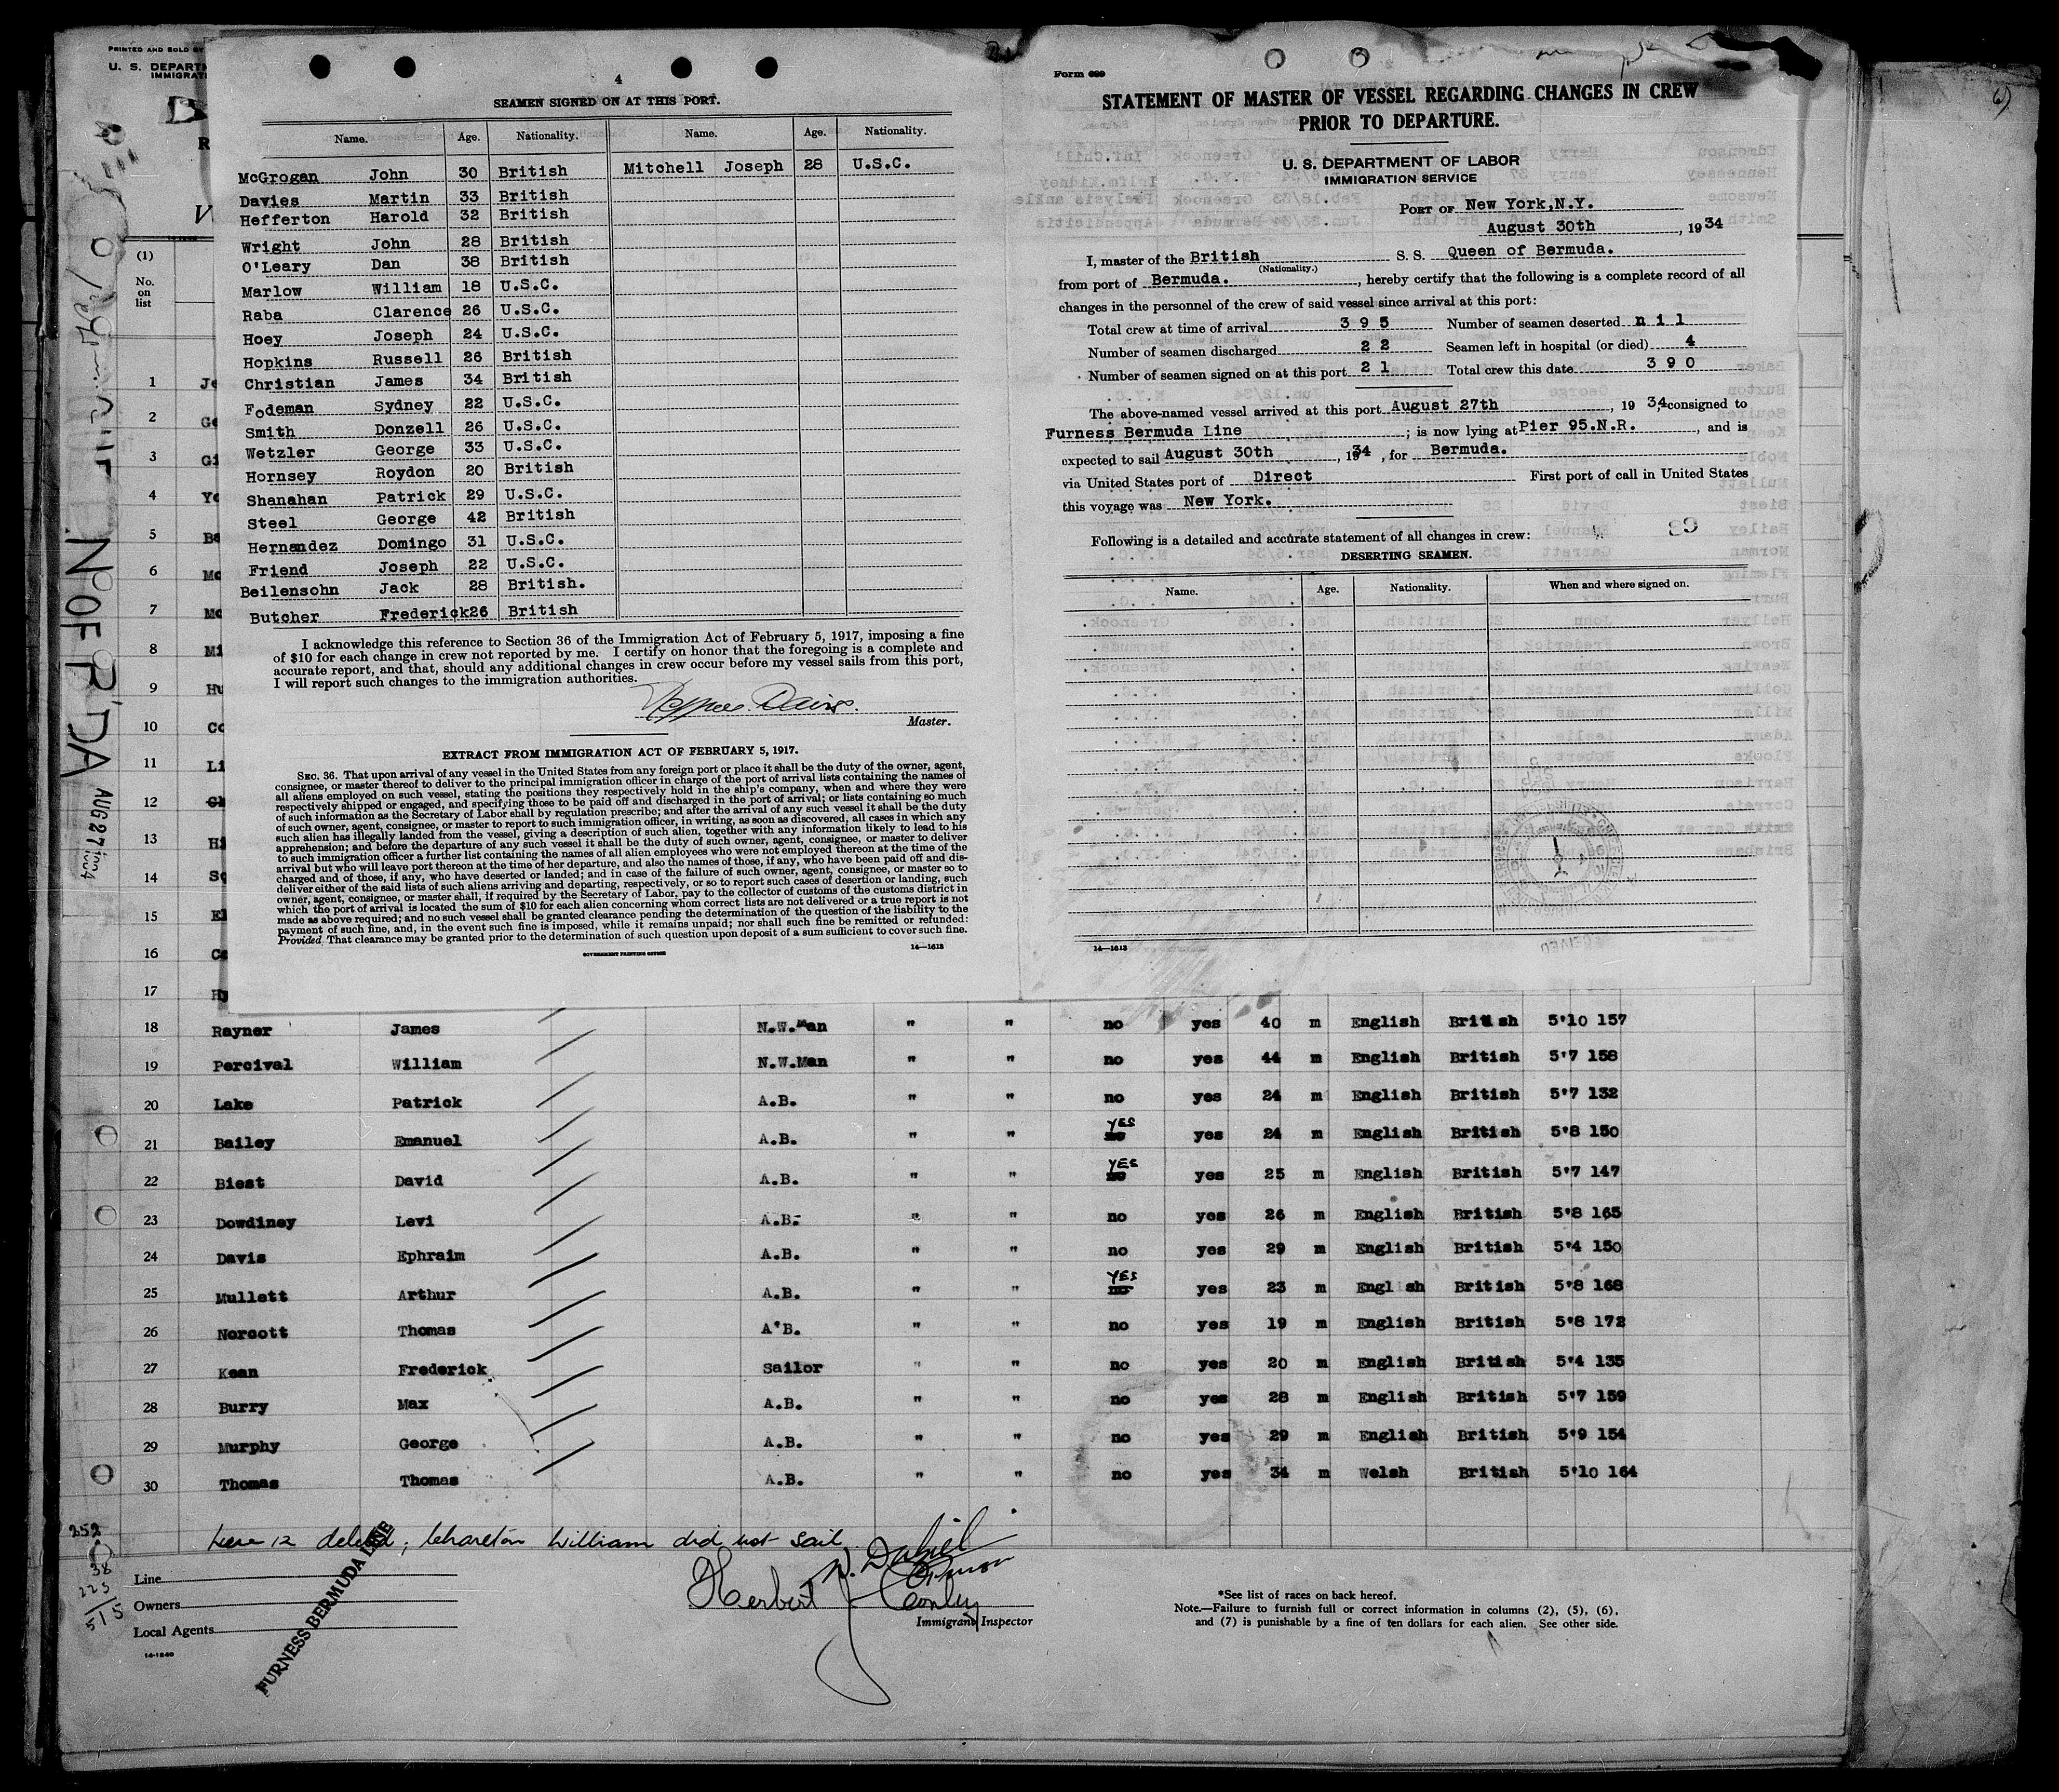 PRINTED AND SOLD BY
U. S. DEPART
IMMIGRATI
4
SEAMEN SIGNED ON AT THIS PORT.
Name. Age. Nationality. Name. Age. Nationality.
McGrogan John 30 British Mitchell Joseph 28 U.S.C.
Davies Martin 33 British
Hefferton Harold 32 British
Wright John 28 British
O'Leary Dan 38 British
Marlow William 18 U.S.C.
Raba Clarence 26 U.S.C.
Hoey Joseph 24 U.S.C.
Hopkins Russell 26 British
Christian James 34 British
Fodeman Sydney 22 U.S.C.
Smith Donzell 26 U.S.C.
Wetzler George 33 U.S.C.
Hornsey Roydon 20 British
Shanahan Patrick 29 U.S.C.
Steel George 42 British
Hernandez Domingo 31 U.S.C.
Friend Joseph 22 U.S.C.
Beilensohn Jack 28 British.
Butcher Frederick 26 British
I acknowledge this reference to Section 36 of the Immigration Act of February 5, 1917, imposing a fine
of $10 for each change in crew not reported by me. I certify on honor that the foregoing is a complete and
accurate report, and that, should any additional changes in crew occur before my vessel sails from this port,
I will report such changes to the immigration authorities.
Davis.
Master.
EXTRACT FROM IMMIGRATION ACT OF FEBRUARY 5, 1917.
SEC. 36. That upon arrival of any vessel in the United States from any foreign port or place it shall be the duty of the owner, agent,
consignee, or master thereof to deliver to the principal immigration officer in charge of the port of arrival lists containing the names of
all aliens employed on such vessel, stating the positions they respectively hold in the ship's company, when and where they were
respectively shipped or engaged, and specifying those to be paid off and discharged in the port of arrival; or lists containing so much
of such information as the Secretary of Labor shall by regulation prescribe; and after the arrival of any such vessel it shall be the duty
of such owner, agent, consignee, or master to report to such immigration officer, in writing, as soon as discovered, all cases in which any
such alien has illegally landed from the vessel, giving a description of such alien, together with any information likely to lead to his
apprehension; and before the departure of any such vessel it shall be the duty of such owner, agent, consignee, or master to deliver
to such immigration officer a further list containing the names of all alien employees who were not employed thereon at the time of the
arrival but who will leave port thereon at the time of her departure, and also the names of those, if any, who have been paid off and dis-
charged and of those, if any, who have deserted or landed; and in case of the failure of such owner, agent, consignee, or master so to
deliver either of the said lists of such aliens arriving and departing, respectively, or so to report such cases of desertion or landing, such
owner, agent, consignee, or master shall, if required by the Secretary of Labor, pay to the collector of customs of the customs district in
which the port of arrival is located the sum of $10 for each alien concerning whom correct lists are not delivered or a true report is not
made as above required; and no such vessel shall be granted clearance pending the determination of the question of the liability to the
payment of such fine, and, in the event such fine is imposed, while it remains unpaid; nor shall such fine be remitted or refunded:
Provided That clearance may be granted prior to the determination of such question upon deposit of a sum sufficient to cover such fine.
14—1613
GOVERNMENT PRINTING OFFICE
Form 689
STATEMENT OF MASTER OF VESSEL REGARDING CHANGES IN CREW
PRIOR TO DEPARTURE.
U. S. DEPARTMENT OF LABOR
IMMIGRATION SERVICE
PORT OF New York,N.Y.
August 30th, 1934
I, master of the British S. S. Queen of Bermuda.
(Nationality.)
from port of Bermuda., hereby certify that the following is a complete record of all
changes in the personnel of the crew of said vessel since arrival at this port:
Total crew at time of arrival 395 Number of seamen deserted nil
Number of seamen discharged 22 Seamen left in hospital (or died) 4
Number of seamen signed on at this port 21 Total crew this date 390
The above-named vessel arrived at this port August 27th, 1934, consigned to
Furness Bermuda Line; is now lying at Pier 95.N.R., and is
expected to sail August 30th, 1934, for Bermuda.
via United States port of Direct First port of call in United States
this voyage was New York.
89
Following is a detailed and accurate statement of all changes in crew:
DESERTING SEAMEN.
Name. Age. Nationality. When and where signed on.
14—1613
(1)
No.
on
list
1 Je
2 Ge
3 Gi
4 Yo
5 Be
6 Mc
7 Mc
8 Mi
9 Hu
10 Co
11 Li
12 Ch
13 Hi
14 Sc
15 El
16 Ca
17 Hy
N OF R'DA
AUG 27 1934
18 Rayner James N.W.Man " " no yes 40 m English British 5'10 157
19 Percival William N.W.Man " " no yes 44 m English British 5'7 158
20 Lake Patrick A.B. " " no yes 24 m English British 5'7 132
21 Bailey Emanuel A.B. " " no YES yes 24 m English British 5'8 150
22 Biest David A.B. " " no YES yes 25 m English British 5'7 147
23 Dowdiney Levi A.B. " " no yes 26 m English British 5'8 165
24 Davis Ephraim A.B. " " no yes 29 m English British 5'4 150
25 Mullett Arthur A.B. " " no YES yes 23 m Engl sh British 5'8 168
26 Norcott Thomas A'B. " " no yes 19 m English British 5'8 172
27 Kean Frederick Sailor " " no yes 20 m English British 5'4 135
28 Burry Max A.B. " " no yes 28 m English British 5'7 159
29 Murphy George A.B. " " no yes 29 m English British 5'9 154
30 Thomas Thomas A.B. " " no yes 34 m Welsh British 5'10 164
Line 12 deleted, Charlton William did not sail
252
38
225
515
Line
Owners
Local Agents
14-1240
FURNESS BERMUDA LINE
Herbert J. Conley
Immigrant Inspector
*See list of races on back hereof.
Note.—Failure to furnish full or correct information in columns (2), (5), (6),
and (7) is punishable by a fine of ten dollars for each alien. See other side.